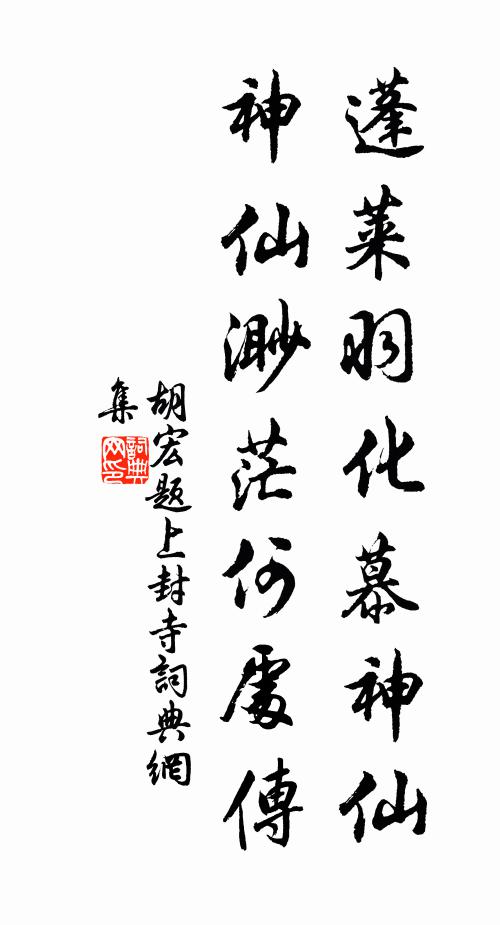 蓬萊羽化慕神仙
神仙渺茫何處傳
胡宏题上封寺詞典網
集
詞典
网印